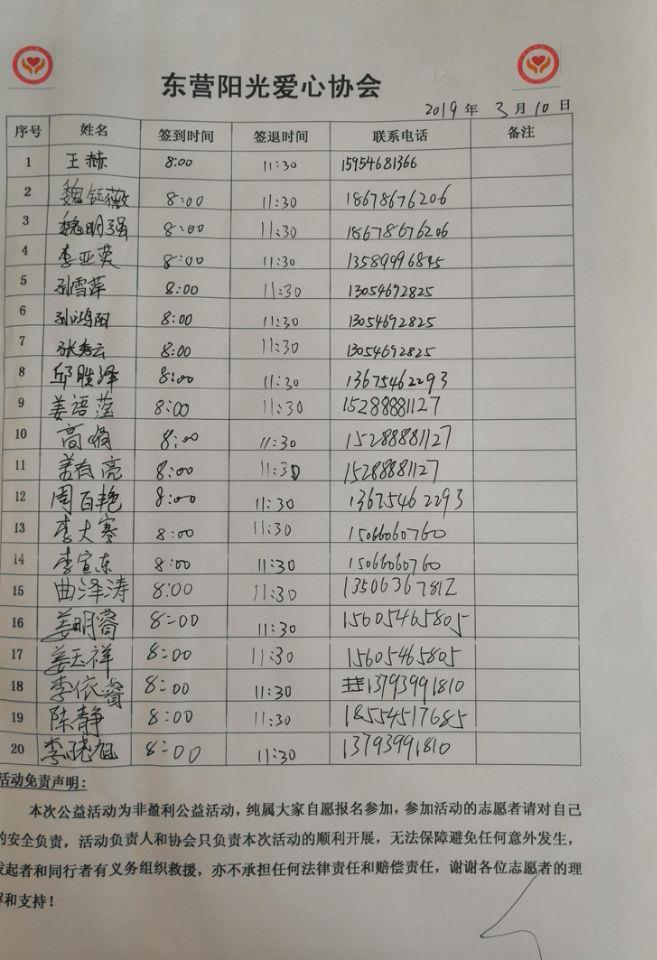 东营阳光爱心协会
2019 年 3 月 10 日
序号 姓名 签到时间 签退时间 联系电话 备注
1 王赫 8:00 11:30 15954681366
2 魏钰薇 8:00 11:30 18678676206
3 魏明强 8:00 11:30 18678676206
4 李亚英 8:00 11:30 13589996845
5 孙雪萍 8:00 11:30 13054692825
6 孙鸿阳 8:00 11:30 13054692825
7 张秀云 8:00 11:30 13054692825
8 邱胜泽 8:00 11:30 13675462293
9 姜语萱 8:00 11:30 15288881127
10 高娟 8:00 11:30 15288881127
11 姜有亮 8:00 11:30 15288881127
12 周百艳 8:00 11:30 13675462293
13 李大寨 8:00 11:30 15066060760
14 李宣东 8:00 11:30 15066060760
15 曲泽涛 8:00 11:30 13506367812
16 姜明睿 8:00 11:30 15605465805
17 姜玉祥 8:00 11:30 15605465805
18 李依睿 8:00 11:30 13793991810
19 陈静 8:00 11:30 18554517685
20 李晓旭 8:00 11:30 13793991810
活动免责声明：
本次公益活动为非盈利公益活动，纯属大家自愿报名参加，参加活动的志愿者请对自己
的安全负责，活动负责人和协会只负责本次活动的顺利开展，无法保障避免任何意外发生，
发起者和同行者有义务组织救援，亦不承担任何法律责任和赔偿责任，谢谢各位志愿者的理
解和支持！